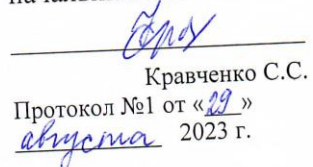 Кравченко С.С.
Протокол №1 от «29»
августа 2023 г.